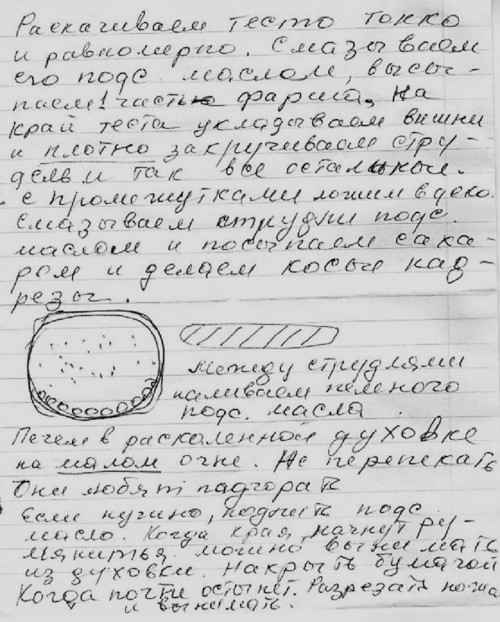 Раскачиваем тесто тонко
и равномерно. Смазываем
его подс. маслом, высы-
паем 1 часть фарша, на
край теста укладываем вишни
и плотно закручиваем стру-
дель и так все остальные.
с промежутками ложим в деко.
Смазываем струдли подс.
маслом и посыпаем саха-
ром и делаем косые над-
резы.
между струдлями
наливаем немного
подс. масла
Печем в раскаленной духовке
на малом огне. Не перепекать
Они любят падгорать
Если нужно, подлить подс.
масло. Когда края начнут ру-
мянитья можно вынимать
из духовки. накрыть бумагой
Когда почти остынет. Разрезать ножа
и вынимать.